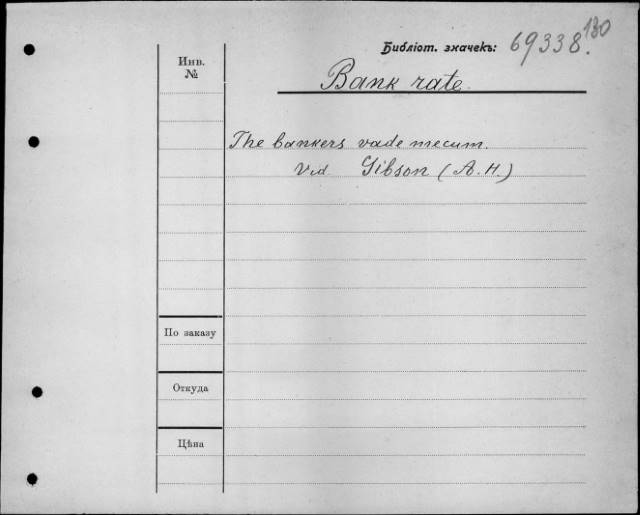 130
Библіот. значекъ: 69338.
Инв. №
Bank rate.
The bankers vade mecum.
Vid. Gibson (A.H.)
По заказу
Откуда
Цѣна